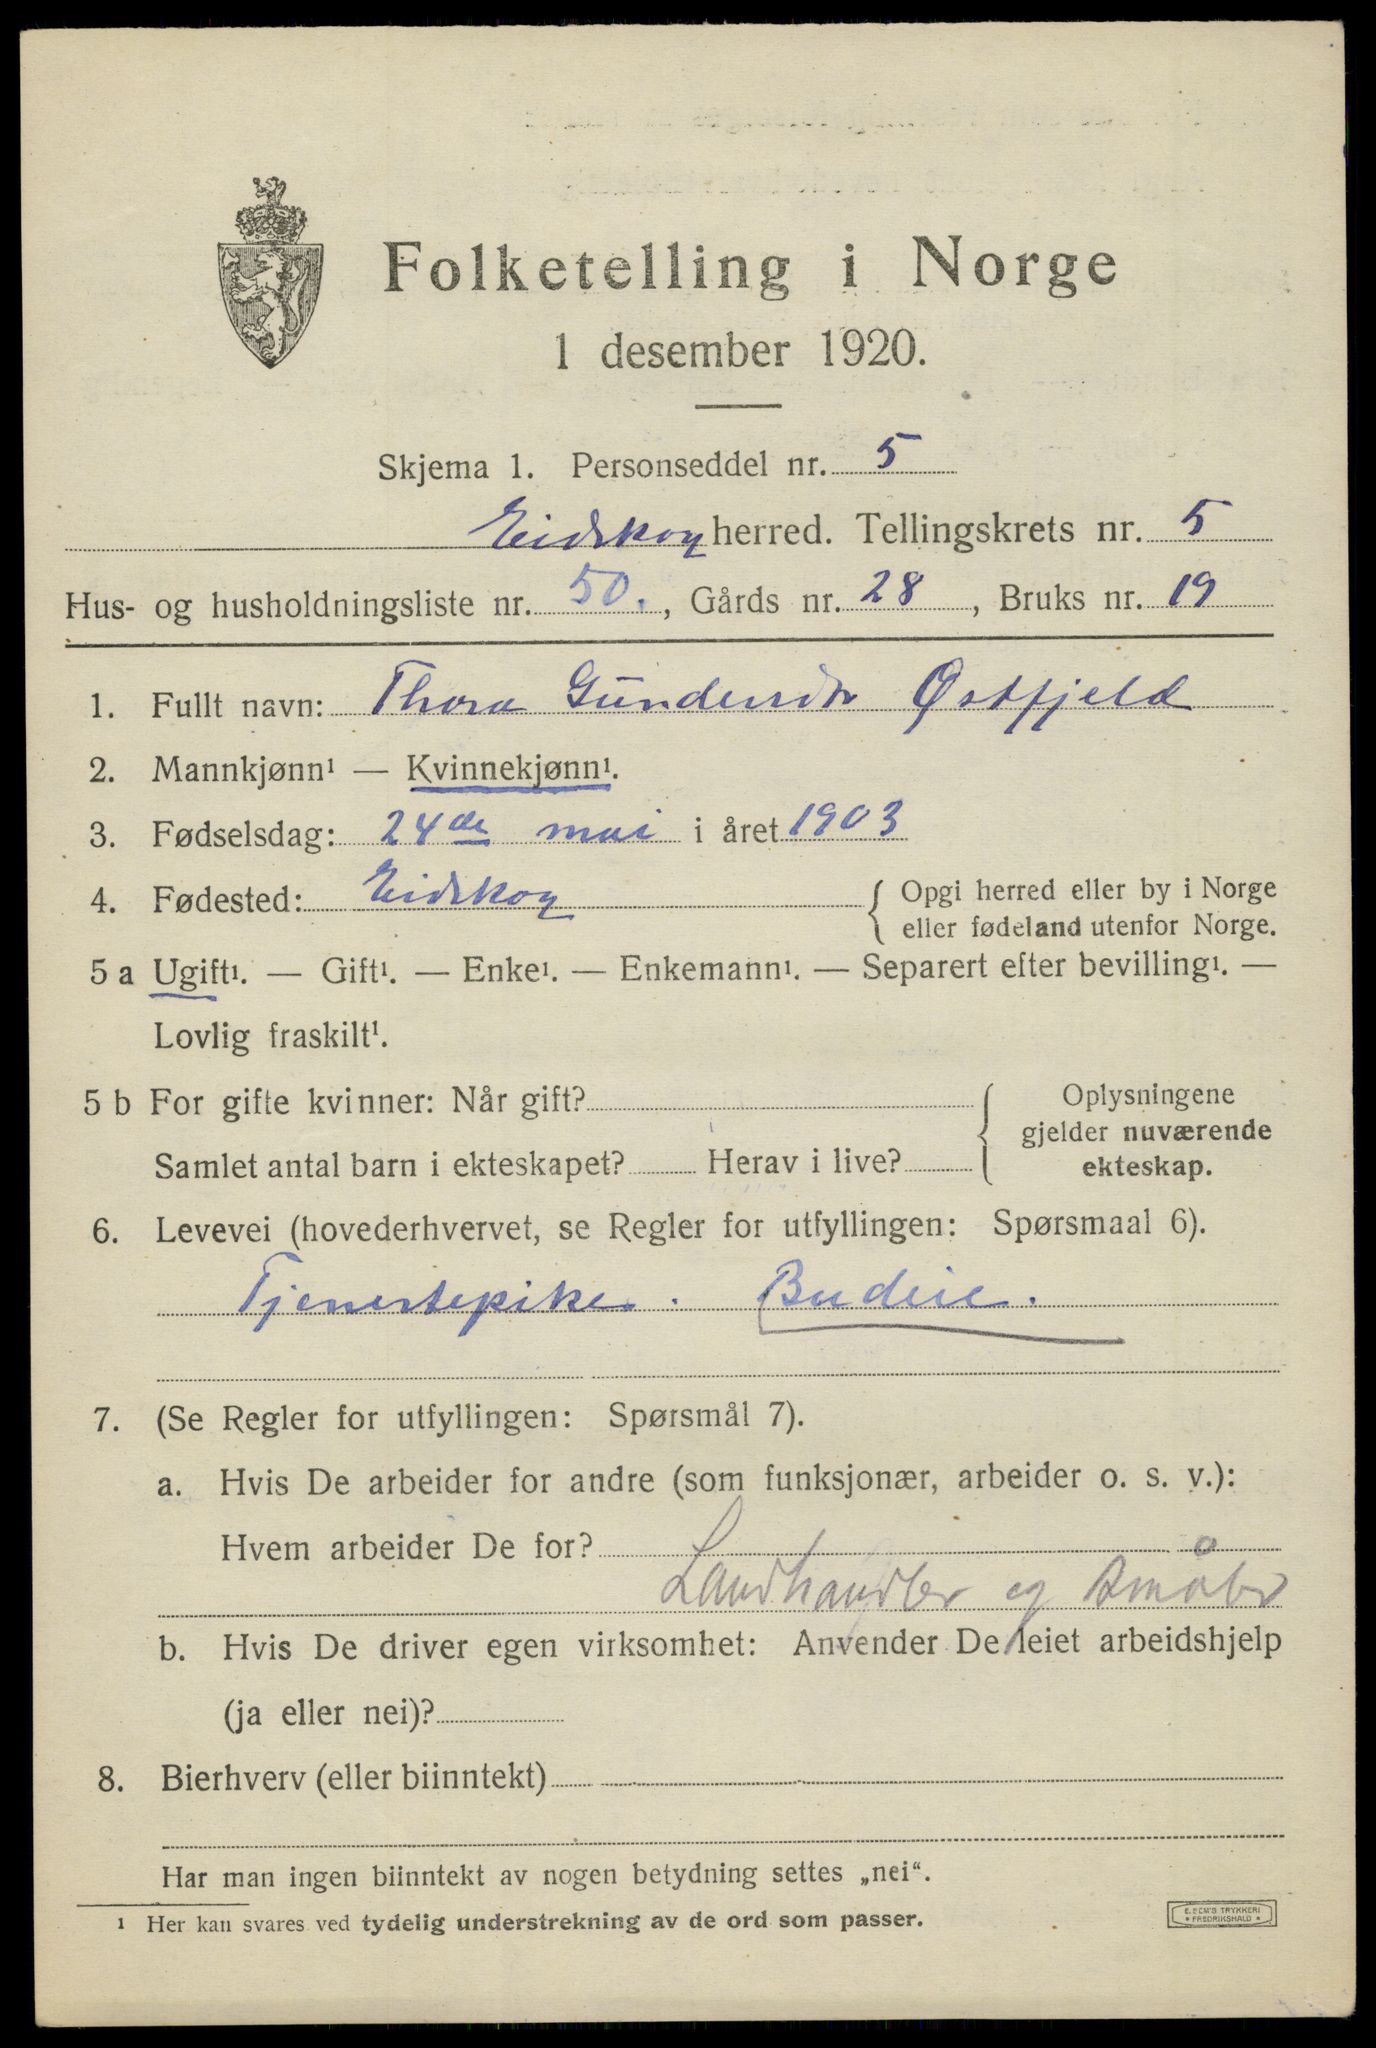 Folketelling i Norge
1 desember 1920.
Skjema 1. Personseddel nr. 5
Eidskog herred. Tellingskrets nr. 5
Hus- og husholdningsliste nr. 50., Gårds nr. 28, Bruks nr. 19
1. Fullt navn: Thora Gundersdtr Østfjeld
2. Mannkjønn¹ — Kvinnekjønn¹.
3. Fødselsdag: 24de mai i året 1903
4. Fødested: Eidskog { Opgi herred eller by i Norge
eller fødeland utenfor Norge.
5 a Ugift¹. — Gift¹. — Enke¹. — Enkemann¹. — Separert efter bevilling¹. —
Lovlig fraskilt¹.
5 b For gifte kvinner: Når gift? { Oplysningene
gjelder nuværende
Samlet antal barn i ekteskapet? Herav i live? ekteskap.
6. Levevei (hovederhvervet, se Regler for utfyllingen: Spørsmaal 6).
Tjenestepike. Budeie.
7. (Se Regler for utfyllingen: Spørsmål 7).
a. Hvis De arbeider for andre (som funksjonær, arbeider o. s. v.):
Hvem arbeider De for?
Landhandler og småbr
b. Hvis De driver egen virksomhet: Anvender De leiet arbeidshjelp
(ja eller nei)?
8. Bierhverv (eller biinntekt)
Har man ingen biinntekt av nogen betydning settes „nei“.
¹ Her kan svares ved tydelig understrekning av de ord som passer.
E. SEM'S TRYKKERI
* FREDRIKSHALD *